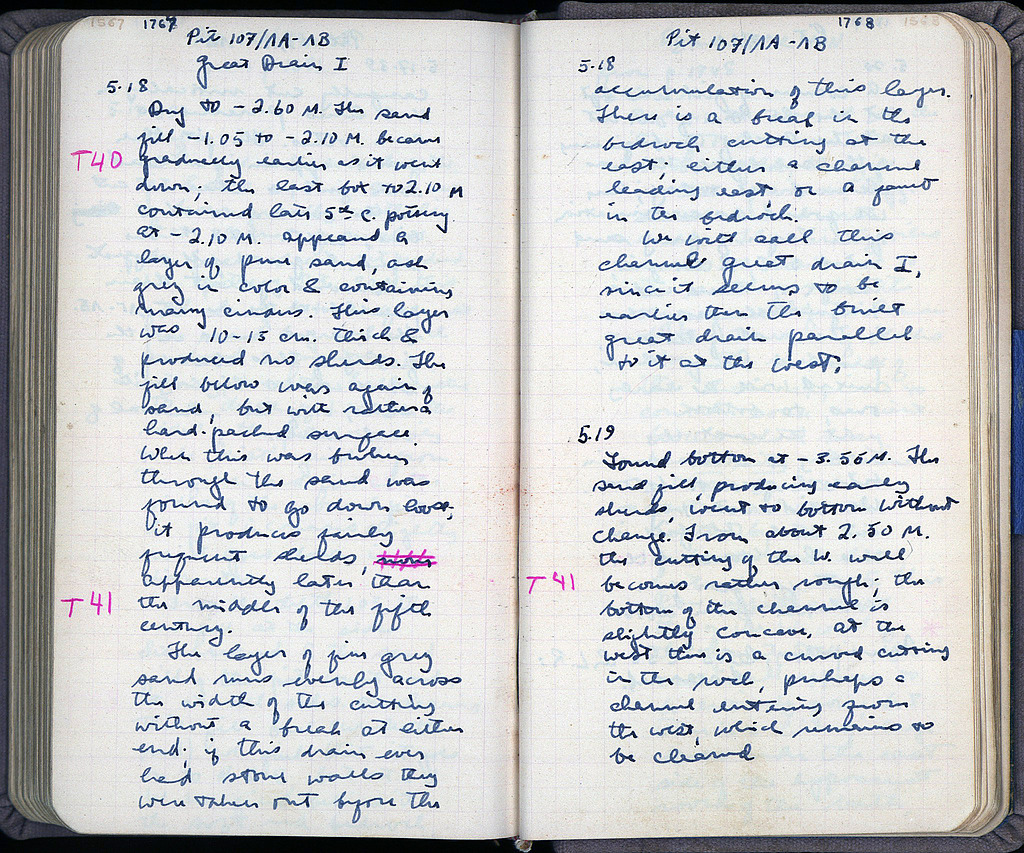 1567 1767
Pit 107/ΛA-ΛB
Great Drain I
5.18
Dug to -2.60 M. The sand
fill -1.05 to -2.10 M. became
T40
gradually earlier as it went
down; the last bot to 2.10 M
contained late 5th c. pottery.
At -2.10 M. appeared a
layer of pure sand, ash
grey in color & containing
many cinders. This layer
was 10-15 cm. thick &
produced no sherds. The
fill below was again of
sand, but with rather a
hard-packed surface.
When this was broken
through the sand was
found to go down loose;
it produces fairly
frequent sherds,
apparently later than
T41
the middle of the fifth
century.
The layer of fine grey
sand runs evenly across
the width of the cutting
without a break at either
end; if this drain ever
had stone walls they
were taken out before the
1768 1568
Pit 107/ΛA-ΛB
5.18
accumulation of this layer.
There is a break in the
bedrock cutting at the
east; either a channel
leading east or a joint
in the bedrock.
We will call this
channel great drain I,
since it seems to be
earlier than the built
great drain parallel
to it at the west.
5.19
Found bottom at -3.56 M. The
sand fill, producing early
sherds, went to bottom without
change. From about 2.50 M.
the cutting of the W. wall
T41
becomes rather rough; the
bottom of the channel is
slightly concave. At the
west there is a curved cutting
in the rock, perhaps a
channel entering from
the west, which remains to
be cleared